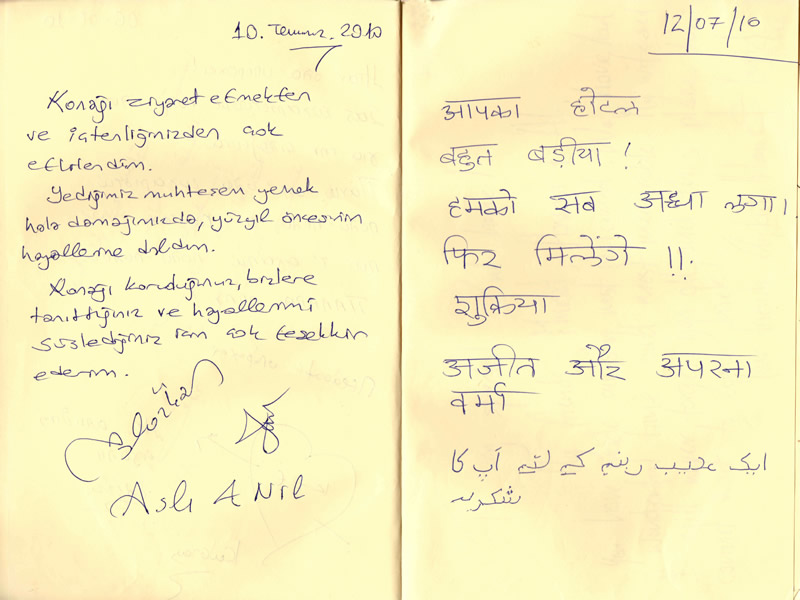 10. Temmuz. 2010
Konağı ziyaret etmekten
ve içtenliğinizden çok
etkilendim.
Yediğimiz muhteşem yemek
hala damağımızda, yüzyıl öncesinin
hayallerine daldım.
Konağı koruduğunuz, bizlere
tanıttığınız ve hayallerimi
süslediğiniz için çok teşekkür
ederim.
Aslı ANIL
12/07/10
आपका होटल
बहुत बड़ीया !
हमको सब अच्छा लगा।
फिर मिलेंगे !!
शुक्रिया
अजीत और अपरना
वर्मा
ایک عجیب کے لئے آپ کا
شکریہ